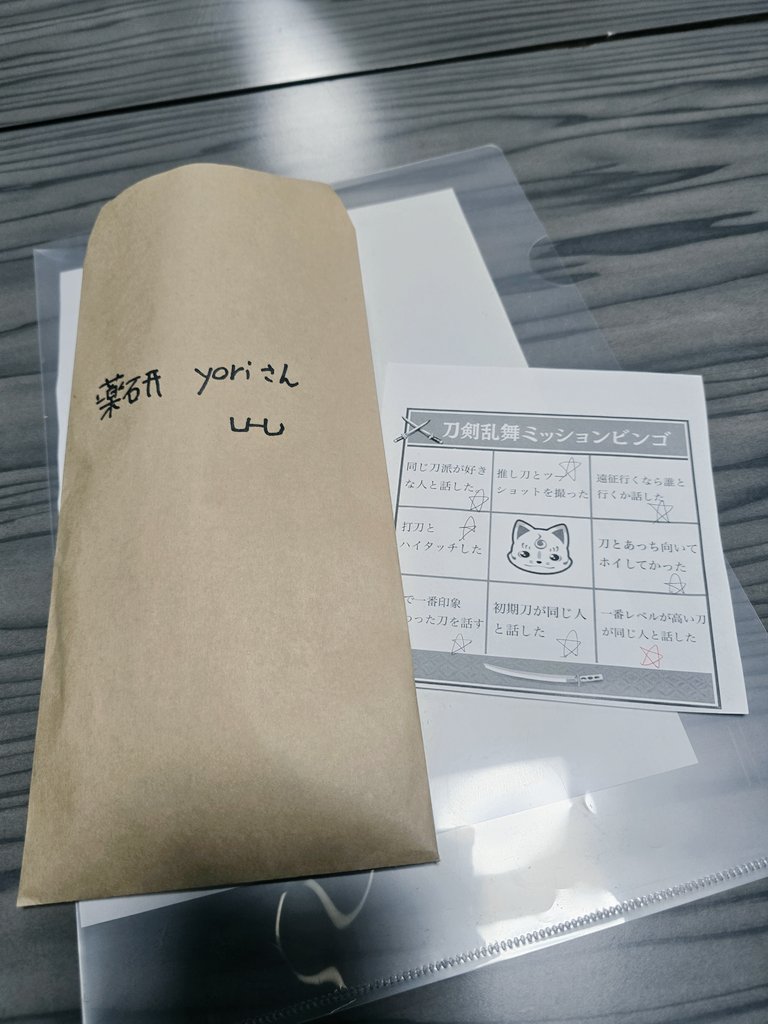 薬研 yoriさん
刀剣乱舞ミッションビンゴ
同じ刀派が好き
な人と話した
推し刀とツー
ショットを撮った
遠征行くなら誰と
行くか話した
打刀と
ハイタッチした
刀とあっち向いて
ホイしてかった
で一番印象
わった刀を話す
初期刀が同じ人
と話した
一番レベルが高い刀
が同じ人と話した